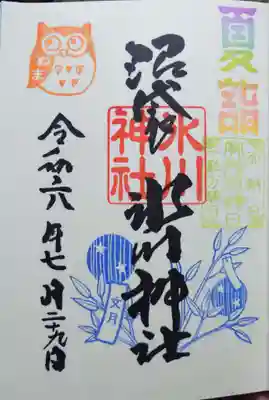 夏詣
沼袋 氷川神社
氷川神社
令和六年七月二十九日
文月
ぬま